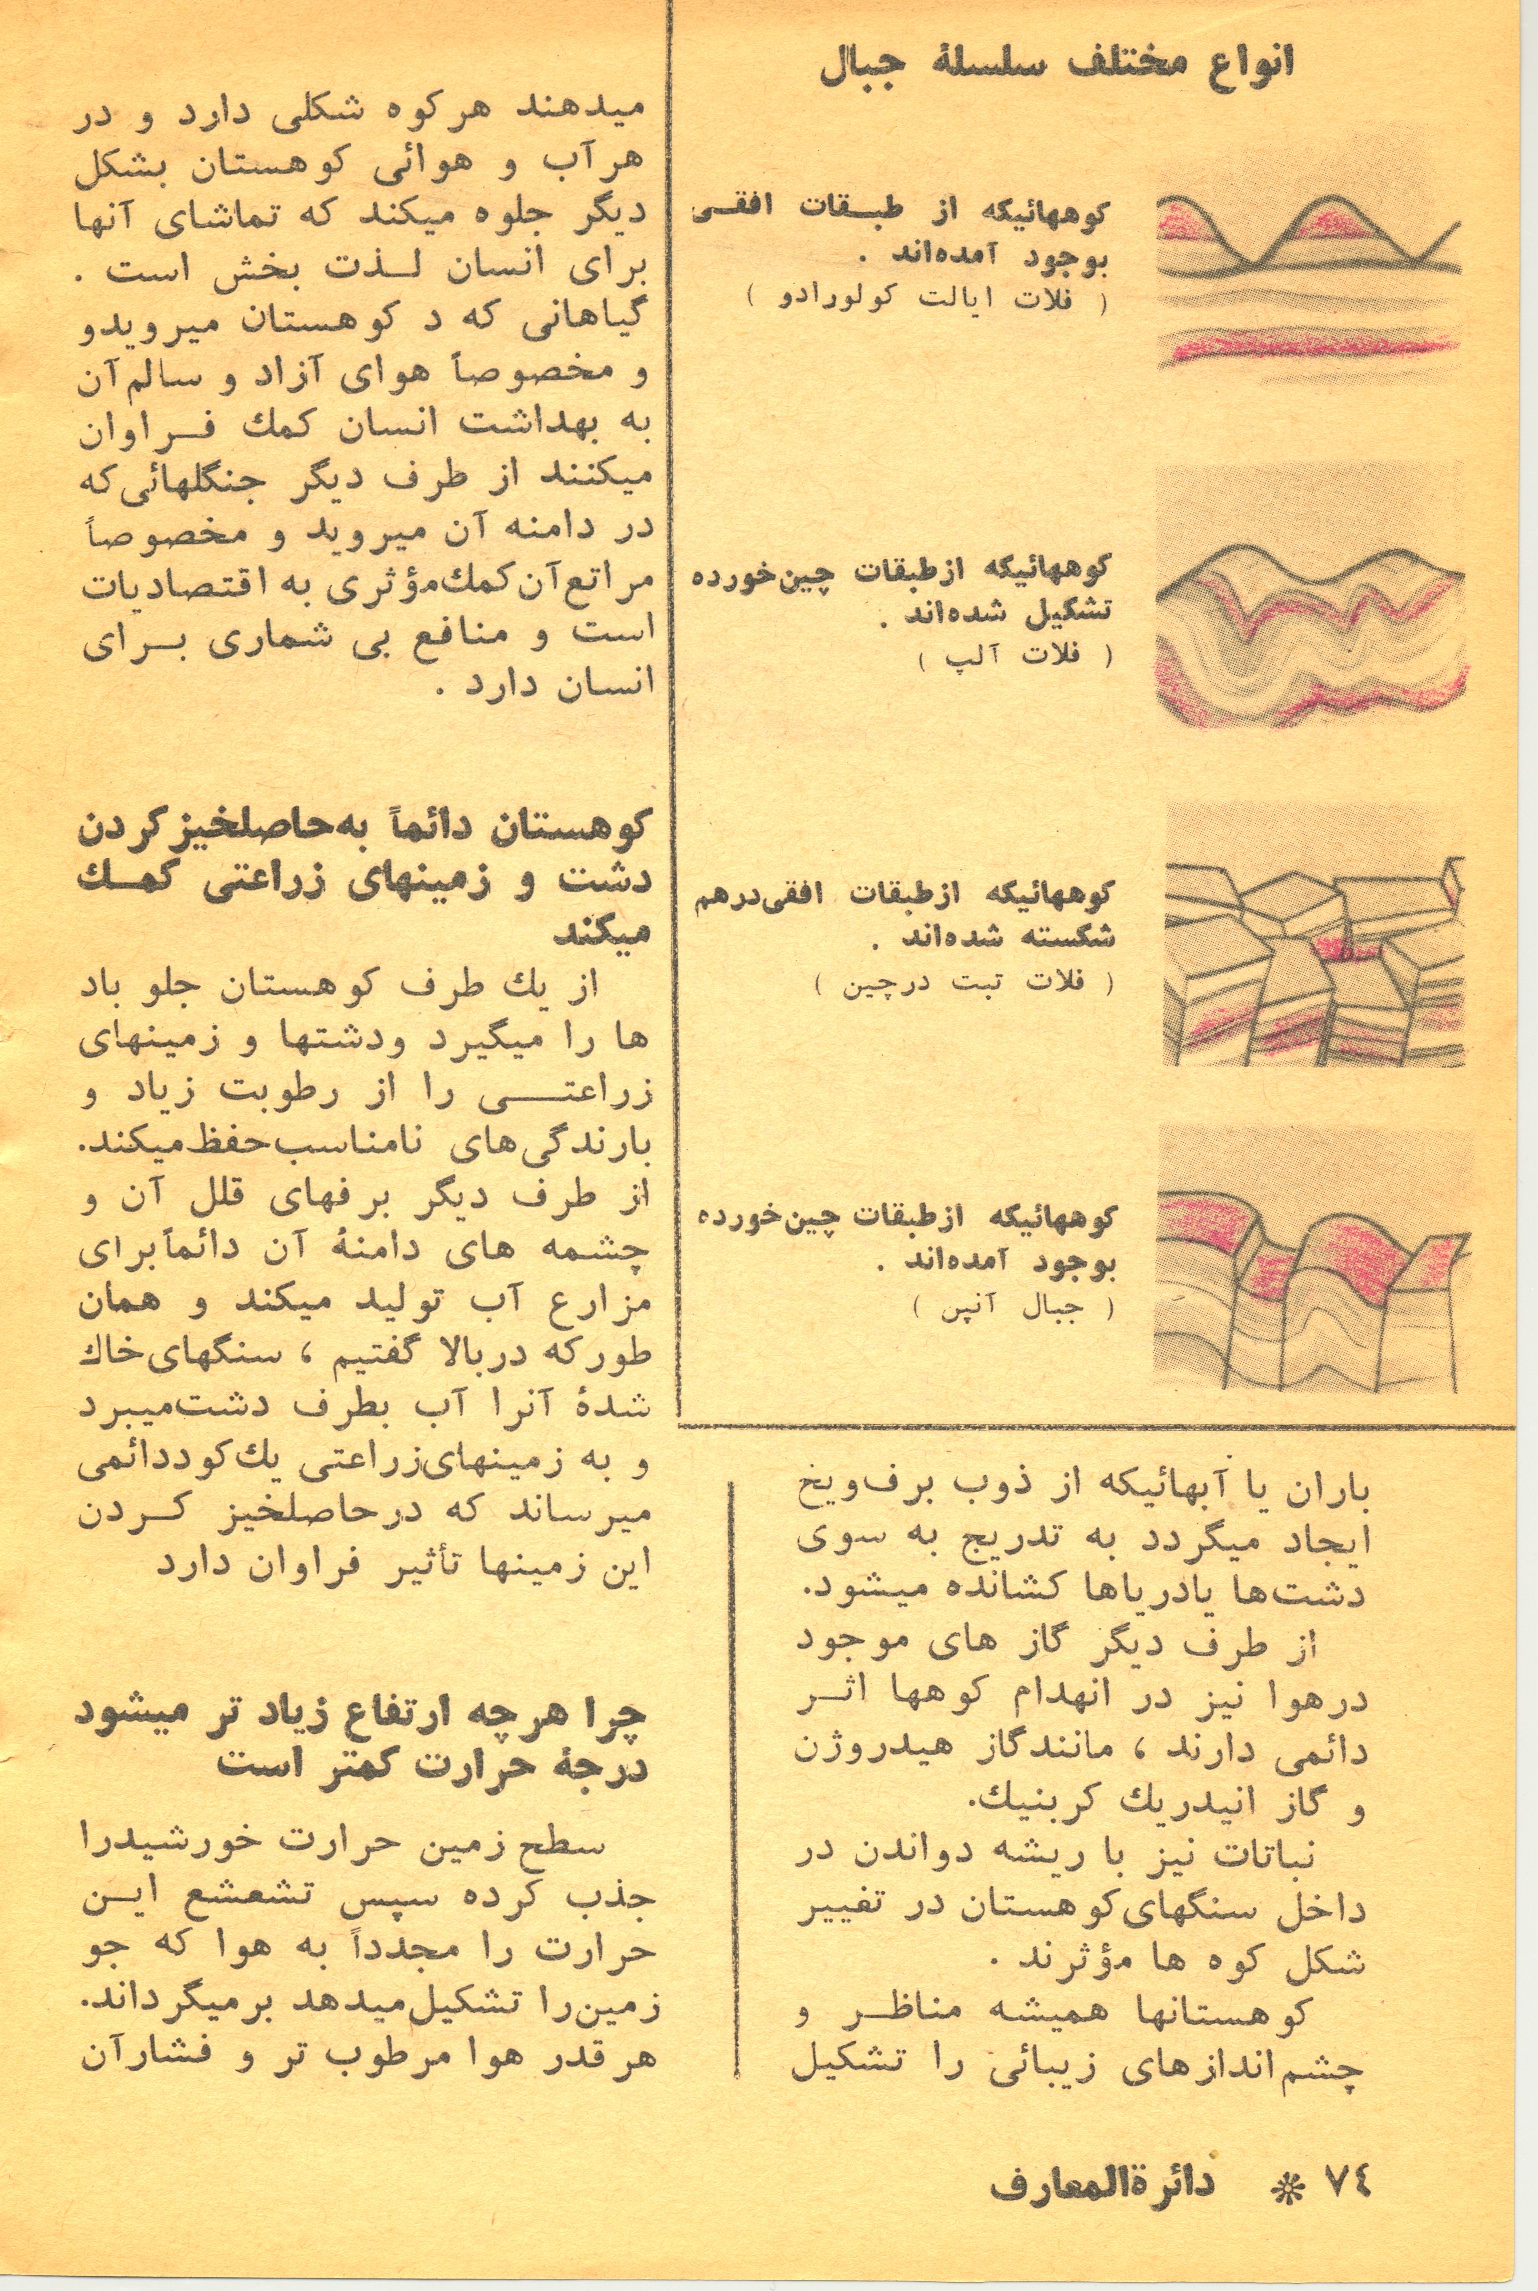 انواع مختلف سلسلهٔ جبال
کوههائیکه از طبـقات افقـی
بوجود آمده‌اند .
( فلات ایالت کولورادو )
کوههائیکه ازطبقات چین‌خورده
تشکیل شده‌اند .
( فلات آلپ )
کوههائیکه ازطبقات افقی‌درهم
شکسته شده‌اند .
( فلات تبت درچین )
کوههائیکه ازطبقات چین‌خورده
بوجود آمده‌اند .
( جبال آنپن )
باران یا آبهائیکه از ذوب برف‌ویخ
ایجاد میگردد به تدریج به سوی
دشت‌ها یادریاها کشانده میشود.
از طرف دیگر گاز های موجود
درهوا نیز در انهدام کوهها اثـر
دائمی دارند ، مانندگاز هیدروژن
و گاز انیدریك کربنیك.
نباتات نیز با ریشه دواندن در
داخل سنگهای‌کوهستان در تفییر
شکل کوه ها مؤثرند .
کوهستانها همیشه مناظـر و
چشم‌اندازهای زیبائی را تشکیل
میدهند هرکوه شکلی دارد و در
هرآب و هوائی کوهستان بشکل
دیگر جلوه میکند که تماشای آنها
برای انسان لـذت بخش است .
گیاهانی که د کوهستان میرویدو
و مخصوصاً هوای آزاد و سالم‌آن
به بهداشت انسان کمك فـراوان
میکنند از طرف دیگر جنگلهائی‌که
در دامنه آن میروید و مخصوصاً
مراتع‌آن‌کمك‌مؤثری به اقتصادیات
است و منافع بی شماری بـرای
انسان دارد .
کوهستان دائماً به‌حاصلخیزکردن
دشت و زمینهای زراعتی کمـك
میکند
از یك طرف کوهستان جلو باد
ها را میگیرد ودشتها و زمینهای
زراعتـی را از رطوبت زیاد و
بارندگی‌های نامناسب‌حفظ‌میکند.
از طرف دیگر برفهای قلل آن و
چشمه های دامنهٔ آن دائماًبرای
مزارع آب تولید میکند و همان
طورکه دربالا گفتیم ، سنگهای‌خاك
شدهٔ آنرا آب بطرف دشت‌میبرد
و به زمینهای‌زراعتی یك‌کوددائمی
میرساند که درحاصلخیز کـردن
این زمینها تأثیر فراوان دارد
چرا هرچه ارتفاع زیاد تر میشود
درجهٔ حرارت کمتر است
سطح زمین حرارت خورشیدرا
جذب کرده سپس تشعشع ایـن
حرارت را مجدداً به هوا که جو
زمین‌را تشکیل‌میدهد برمیگرداند.
هرقدر هوا مرطوب تر و فشارآن
٧٤ * دائرةالمعارف